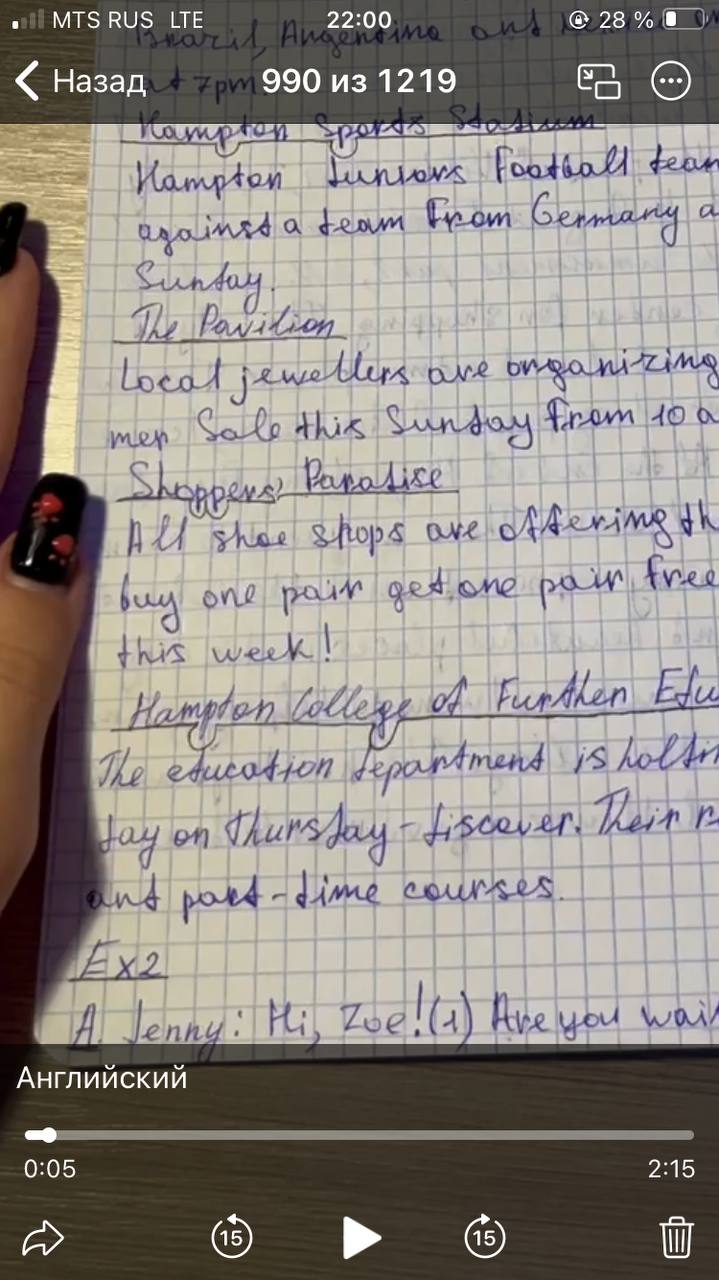 MTS RUS LTE 22:00 28 %
Brazil, Argentina and
Назад 990 из 1219
at 7pm
Hampton Sports Stadium
Hampton Juniors Football team
against a team from Germany a
Sunday.
The Pavilion
Local jewellers are organizing
mer Sale this Sunday from 10 a
Shoppers' Paradise
All shoe shops are offering th
buy one pair get one pair free
this week!
Hampton College of Further Edu
The education department is holdin
day on Thursday - discover. Their r
and part-time courses.
Ex2
A. Jenny: Hi, Zoe! (1) Are you wait
Английский
0:05 2:15
15 15